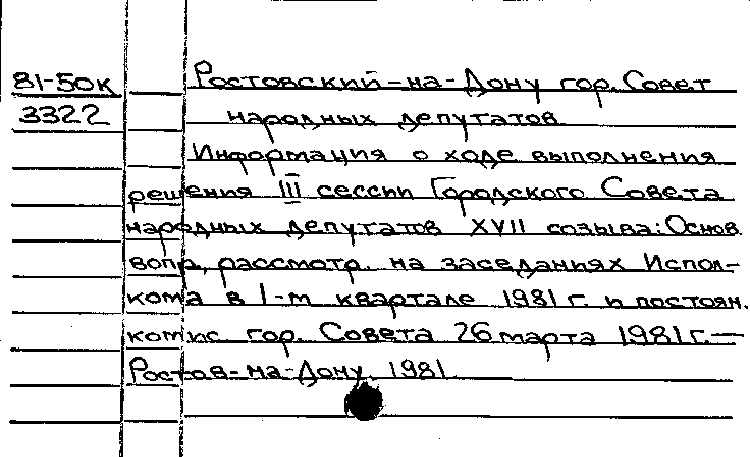 81-50к
3322
Ростовский-на-Дону гор. Совет
народных депутатов
Информация о ходе выполнения
решения III сессии Городского Совета
народных депутатов XVII созыва: Основ.
вопр., рассмотр. на заседаниях Испол-
кома в 1-м квартале 1981 г. и постоян.
комис. гор. Совета 26 марта 1981 г. —
Ростов-на-Дону, 1981.